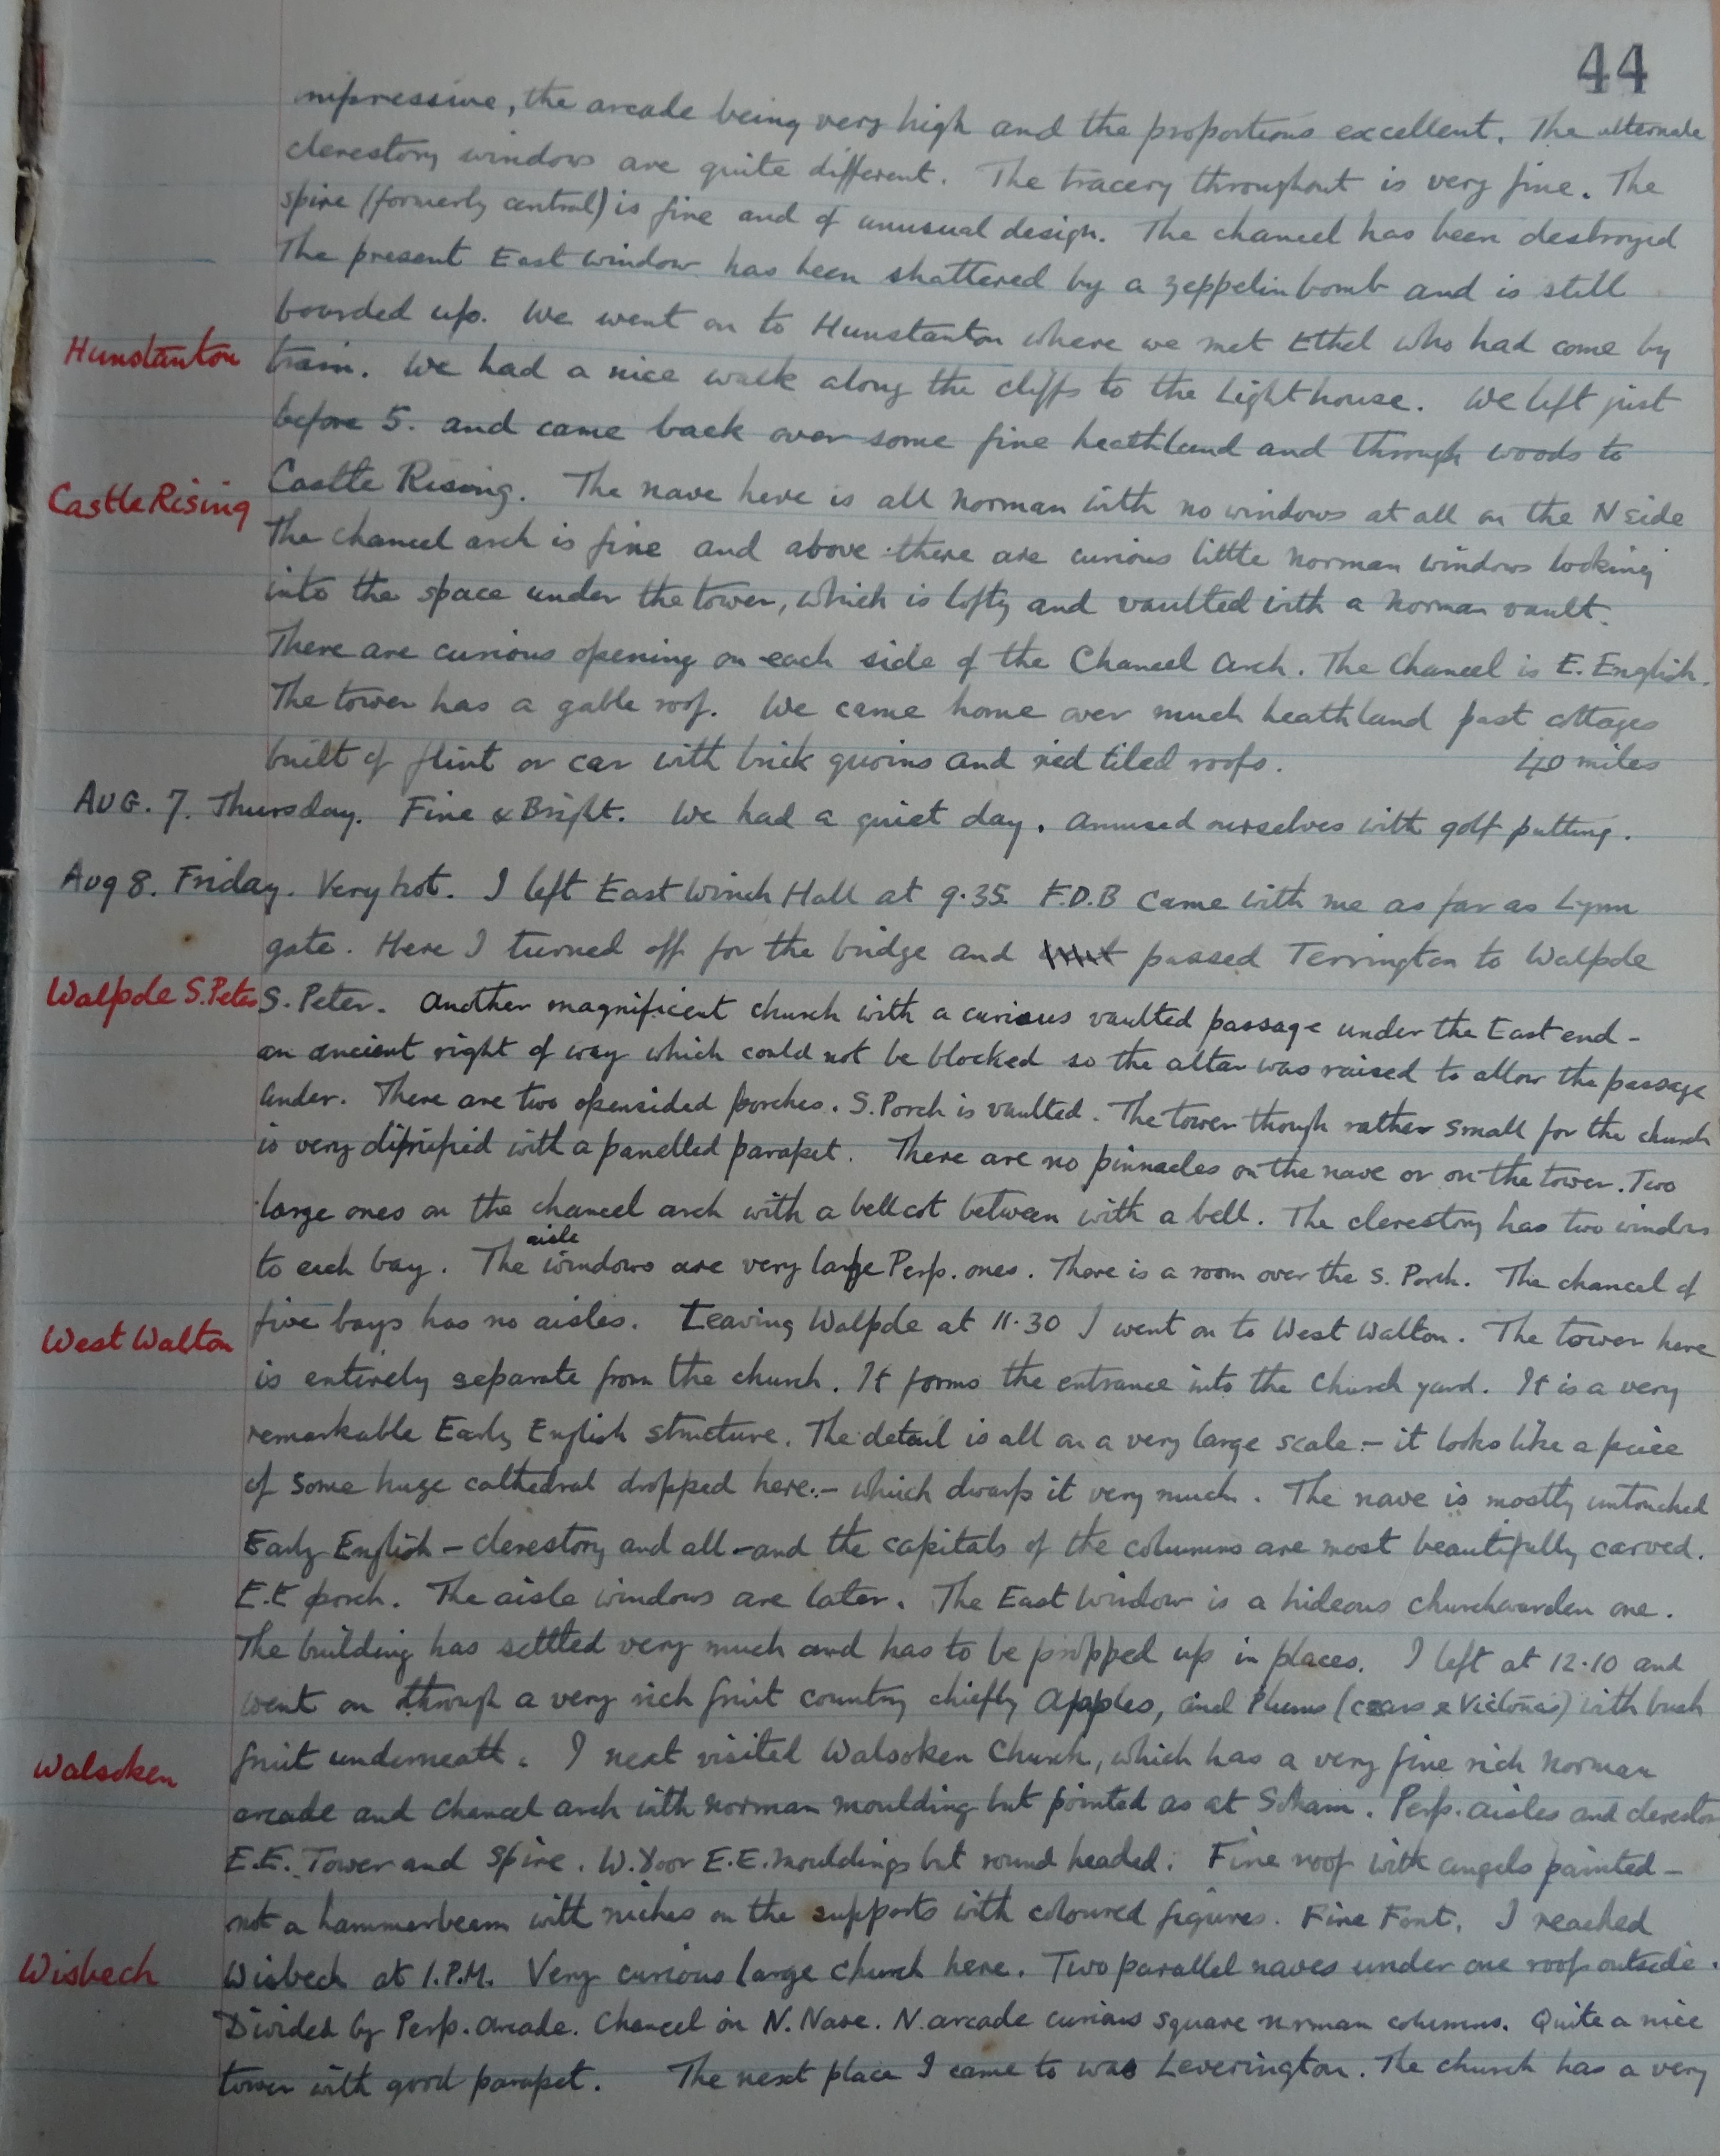 44
impressive, the arcade being very high and the proportions excellent. The alternate
clerestory windows are quite different. The tracery throughout is very fine. The
spire (formerly central) is fine and of unusual design. The chancel has been destroyed
The present East window has been shattered by a zeppelin bomb and is still
boarded up. We went on to Hunstanton where we met Ethel who had come by
Hunstanton train. We had a nice walk along the cliffs to the Lighthouse. We left just
before 5. and came back over some fine heathland and through woods to
Castle Rising Castle Rising. The nave here is all Norman with no windows at all on the N side
The chancel arch is fine and above there are curious little Norman windows looking
into the space under the tower, which is lofty and vaulted with a Norman vault.
There are curious opening on each side of the Chancel Arch. The Chancel is E. English.
The tower has a gable roof. We came home over much heathland past cottages
built of flint or car with brick quoins and red tiled roofs. 40 miles
AUG. 7. Thursday. Fine & Bright. We had a quiet day. Amused ourselves with golf putting.
Aug 8. Friday. Very hot. I left East Winch Hall at 9.35. F.D.B came with me as far as Lynn
gate. Here I turned off for the bridge and passed Terrington to Walpole
Walpole S. Peter S. Peter. Another magnificent church with a curious vaulted passage under the East end -
an ancient right of way which could not be blocked so the altar was raised to allow the passage
under. There are two opensided porches. S. Porch is vaulted. The tower though rather small for the church
is very dignified with a panelled parapet. There are no pinnacles on the nave or on the tower. Two
large ones on the chancel arch with a bellcot between with a bell. The clerestory has two windows
to each bay. The aisle windows are very large Perp. ones. There is a room over the S. Porch. The chancel of
five bays has no aisles. Leaving Walpole at 11.30 I went on to West Walton. The tower here
West Walton
is entirely separate from the church. It forms the entrance into the Church yard. It is a very
remarkable Early English structure. The detail is all on a very large scale - it looks like a peice
of some huge cathedral dropped here - which dwarfs it very much. The nave is mostly untouched
Early English - clerestory and all - and the capitals of the columns are most beautifully carved.
E.E porch. The aisle windows are later. The East Window is a hideous churchwarden one.
The building has settled very much and has to be propped up in places. I left at 12.10 and
went on through a very rich fruit country chiefly Apples, and Plums (czars & Victorias) with bush
Walsoken fruit underneath. I next visited Walsoken Church, which has a very fine rich Norman
arcade and Chancel arch with Norman moulding but pointed as at Soham. Perp. aisles and clerestory
E.E. Tower and Spire. W. Door E.E. mouldings but round headed. Fine roof with angels painted -
not a hammerbeam with niches on the supports with coloured figures. Fine Font. I reached
Wisbech Wisbech at 1. P.M. Very curious large church here. Two parallel naves under one roof outside.
Divided by Perp. arcade. Chancel on N. Nave. N. arcade curious square Norman columns. Quite a nice
tower with good parapet. The next place I came to was Leverington. The church has a very